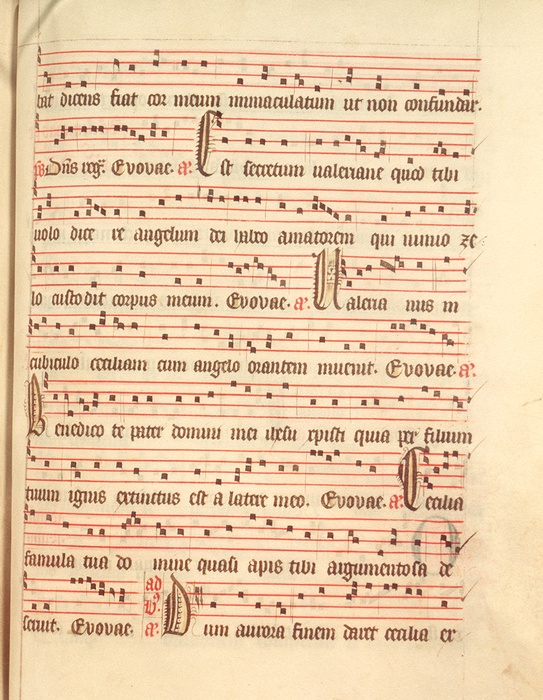 tat dicens fiat cor meum immaculatum ut non confundar.
ps Dns reg. Evovae. a. Est secretum ualeriane quod tibi
uolo dice re angelum dei habeo amatorem qui nimio ze
lo custodit corpus meum. Evovae. a. Ualeria nus in
cubiculo ceciliam cum angelo orantem inuenit. Evovae. a.
Benedico te pater domini mei ihesu xpisti quia per filium
tuum ignis extinctus est a latere meo. Evovae. a. Cecilia
famula tua do mine quasi apis tibi argumentosa de
seruit. Evovae. ad B. a. Dum aurora finem daret cecilia ex